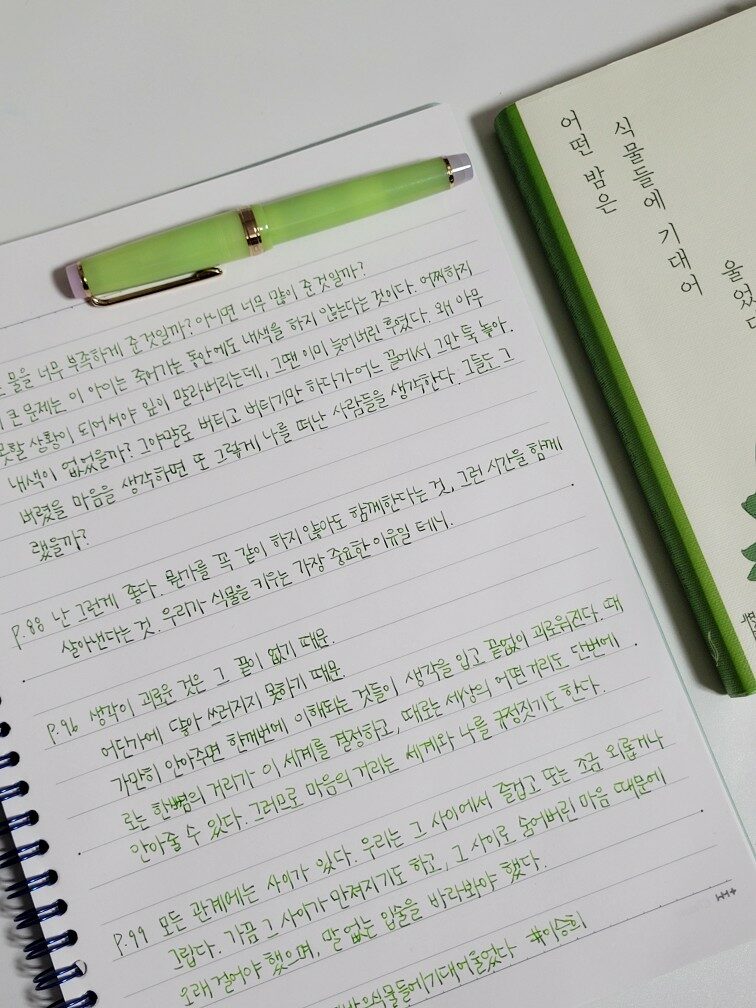 물을 너무 부족하게 준 것일까? 아니면 너무 많이 준 것일까?
큰 문제는 이 아이는 죽어가는 동안에도 내색을 하지 않는다는 것이다. 어찌하지
못할 상황이 되어서야 잎이 말라버리는데, 그땐 이미 늦어버린 후였다. 왜 아무
내색이 없었을까? 그야말로 버티고 버티기만 하다가 어느 끝에서 그만 툭 놓아.
버렸을 마음을 생각하면 또 그렇게 나를 떠난 사람들을 생각한다. 그들도 그
랬을까?
P.88 난 그런게 좋다. 뭔가를 꼭 같이 하지 않아도 함께한다는 것, 그런 시간을 함께
살아낸다는 것. 우리가 식물을 키우는 가장 중요한 이유일 테니.
P.96 생각이 괴로운 것은 그 끝이 없기 때문.
어딘가에 닿아 쓰러지지 못하기 때문.
가만히 안아주면 한꺼번에 이해되는 것들이 생각을 입고 끝없이 괴로워진다. 때
로는 한뼘의 거리가 이 세계를 결정하고, 때로는 세상의 어떤 거리도 단번에
안아줄 수 있다. 그러므로 마음의 거리는 세계와 나를 규정짓기도 한다.
P.99 모든 관계에는 사이가 있다. 우리는 그 사이에서 즐겁고 또는 조금 외롭거나
그립다. 가끔 그 사이가 만져지기도 하고, 그 사이로 숨어버린 마음 때문에
오래 걸어야 했으며, 말 없는 입술을 바라봐야 했다.
밤은식물들에기대어울었다 #이승희
어떤 밤은
식물들에 기대어
울었다